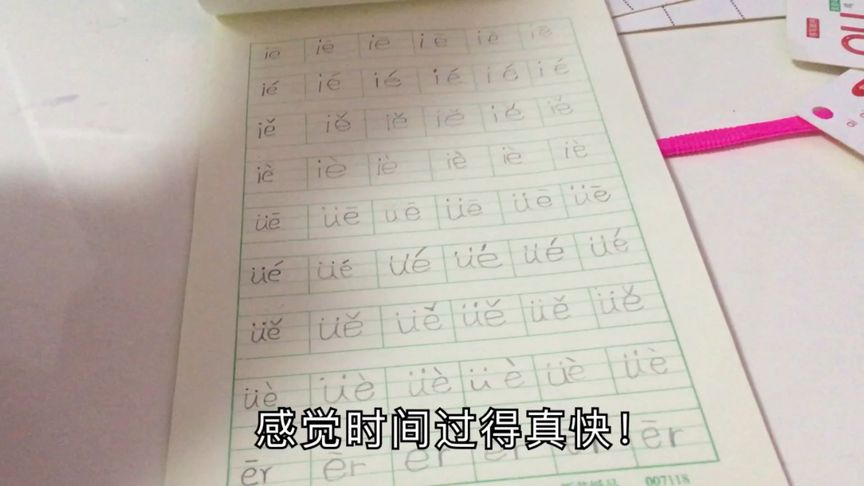 iē iē iē iē iē iē
ié ié ié ié ié ié
iě iě iě iě ié iě
iè iè iè iè iè iè
üē üē uē üē üē üē
üé üé üé üé üé üé
üě üě üě üě üě üě
üè üè üè üè üè üè
感觉时间过得真快!
ēr ēr ēr ēr
007118